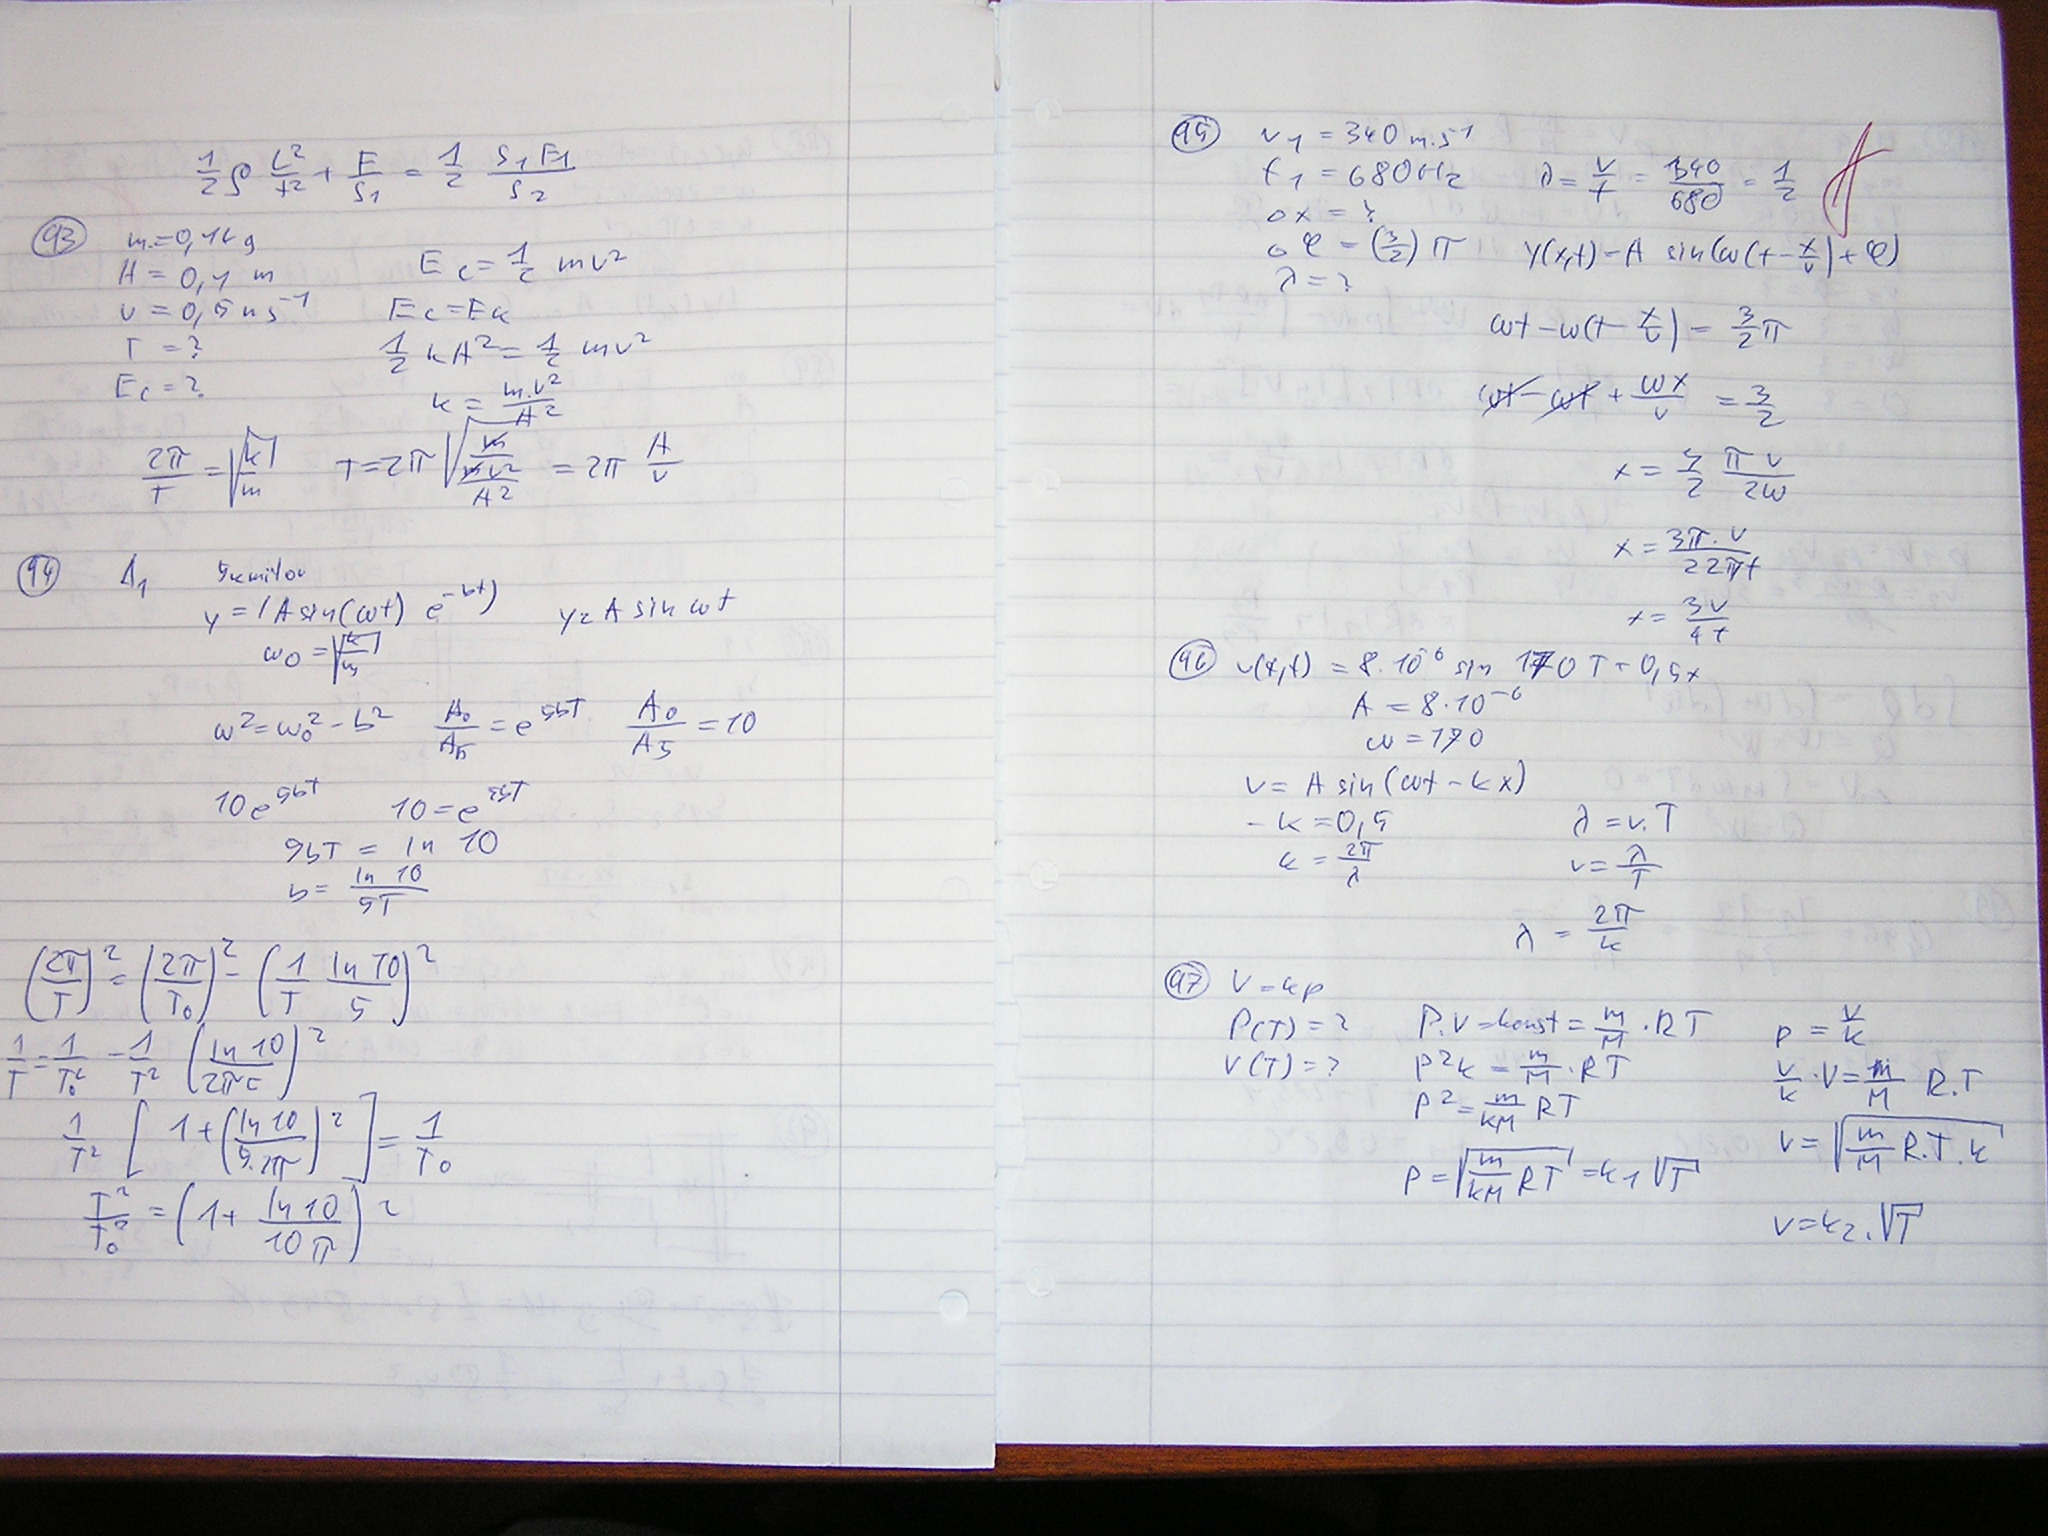 1/2 ρ L²/t² + F/S₁ = 1/2 S₁F₁/S₂
93
m = 0,16 g
A = 0,1 m
v = 0,5 ms⁻¹
T = ?
Ec = ?
Ec = 1/2 mv²
Ec = Ek
1/2 kA² = 1/2 mv²
k = m.v²/A²
2π/T = √(k/m) T = 2π √(m/(mv²/A²)) = 2π A/v
94 A₁ 5 kmitov
y = (A sin(ωt) e^(-bt)) y = A sin ωt
ω₀ = √(k/m)
ω² = ω₀² - b² A₀/A₅ = e^(5bT) A₀/A₅ = 10
10 e^(5bT) 10 = e^(5bT)
5bT = ln 10
b = ln 10/5T
(2π/T)² = (2π/T₀)² - (1/T ln 10/5)²
1/T = 1/T₀² - 1/T² (ln 10/2π5)²
1/T² [1 + (ln 10/5.2π)²] = 1/T₀
T²/T₀² = (1 + ln 10/10π)²
95 v₁ = 340 m.s⁻¹
f₁ = 680 Hz λ = v/f = 340/680 = 1/2
ox = ?
oφ = (3/2) π y(x,t) = A sin(ω(t - x/v) + φ)
λ = ?
ωt - ω(t - x/v) = 3/2 π
ωt - ωt + ωx/v = 3/2
x = 3/2 πv/2ω
x = 3π.v/22πf
x = 3v/4f
96 v(x,t) = 8.10⁻⁶ sin 170 T - 0,5x
A = 8.10⁻⁶
ω = 170
v = A sin(ωt - kx)
- k = 0,5 λ = v.T
k = 2π/λ v = λ/T
λ = 2π/k
97 V = kp
P(T) = ? P.V = konst = m/M .RT p = V/k
V(T) = ? P²k = m/M .RT V/k .V = m/M R.T
P² = m/kM RT
V = √(m/M R.T.k)
P = √(m/kM RT) = k₁√T
V = k₂.√T